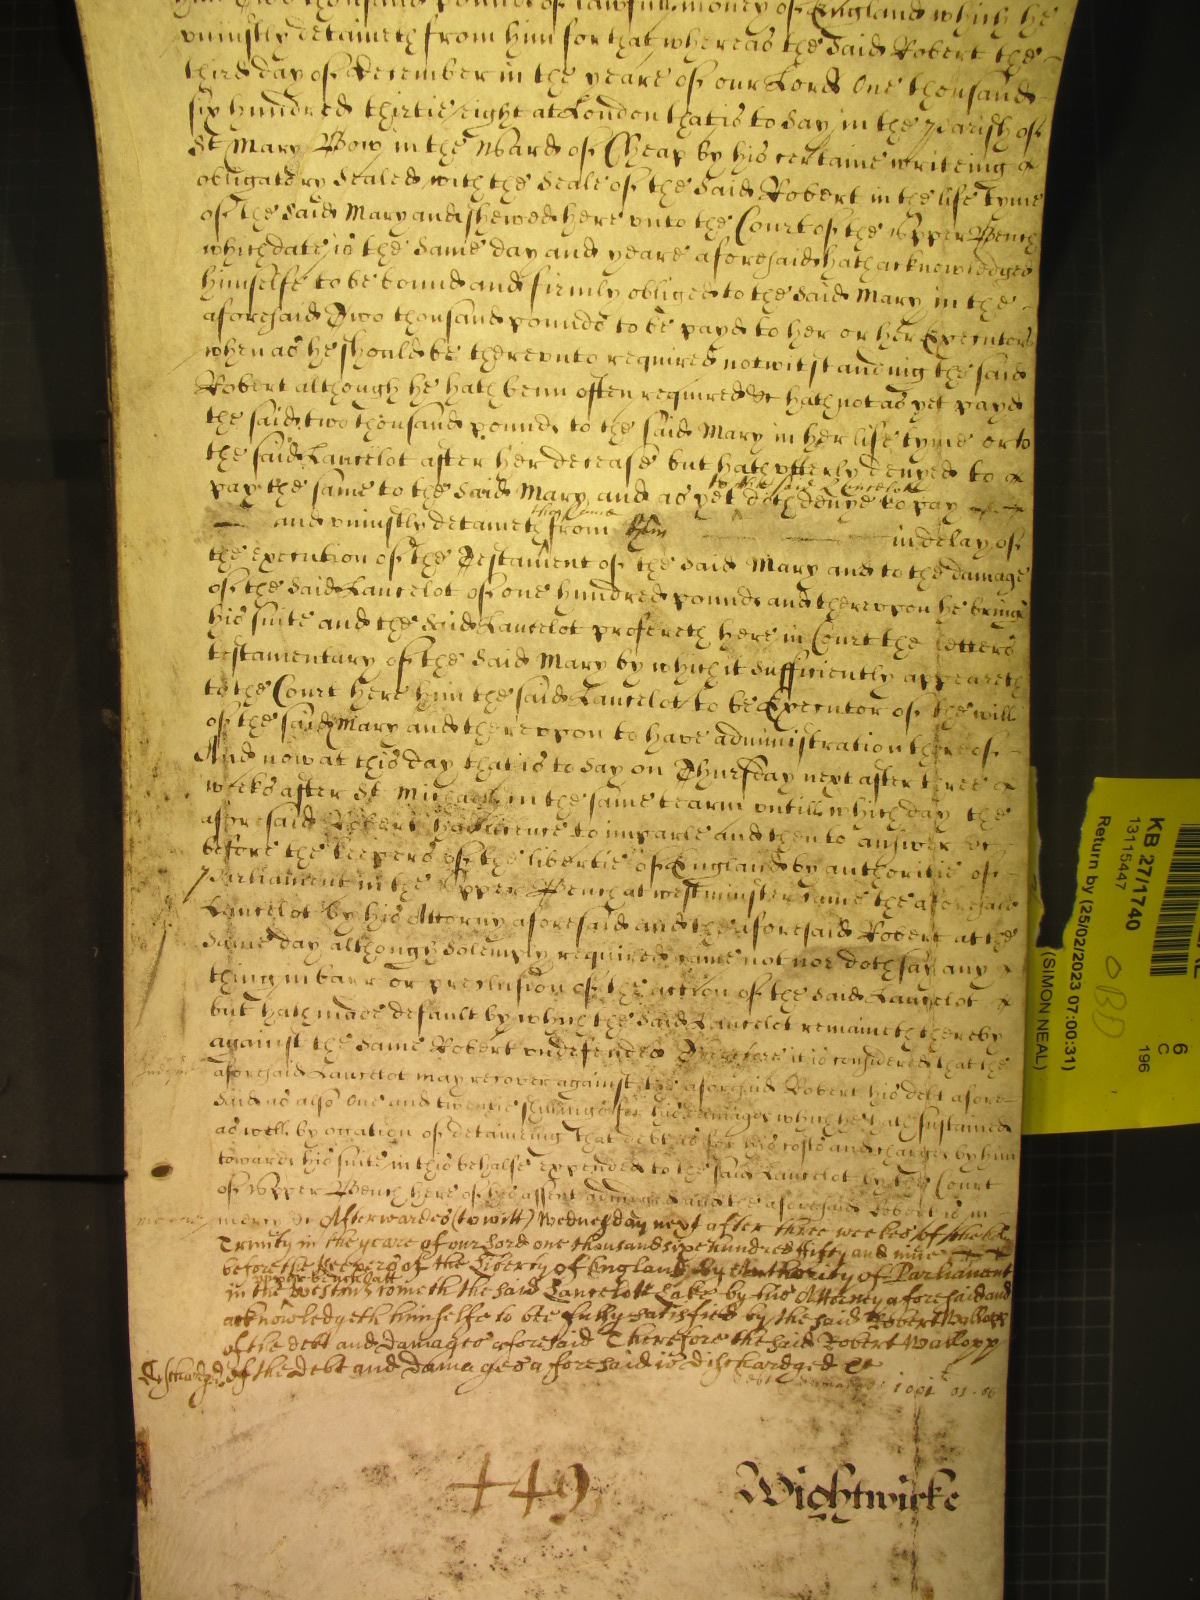 him Two thousand pounds of lawfull money of England which he
uniustly detaineth from him for that whereas the said Robert the
third day of december in the yeare of our Lord One thousand
six hundred thirtie eight at London that is to say in the Parish of
St Mary Bow in the Ward of Cheap by his certaine writeing
obligatory sealed with the seale of the said Robert in the life tyme
of the said Mary and shewed here vnto the Court of the Vpper Bench
which date is the same day and yeare aforesaid hath acknowledged
himselfe to be bound and firmly obliged to the said Mary in the
aforesaid Two thousand pounds to be payd to her or her Executors
when as he should be therevnto required notwitstanding the said
Robert although he hath benn often required &c hath not as yet payd
the said two thousand pounds to the said Mary in her life tyme or to
the said Lancelot after her decease but hath vtterly denyed to
pay the same to the said Mary and as yet to the said Lancelott doth denye to pay
and uniustly detaineth the same from him in delay of
the execution of the Testament of the said Mary and to the damage
of the said Lancelot of one hundred pounds and therevpon he brings
his suite and the said Lancelot profereth here in Court the letters
testamentary of the said Mary by which it sufficiently appeareth
to the Court here him the said Lancelot to be Executor of the will
of the said Mary and therevpon to have administration thereof
And now at this day that is to say on Thursday next after three
weeks after St Michaell in the same tearm vntill which day the
aforesaid Robert had licence to imparle and then to answer &c
before the keepers of the libertie of England by authoritie of
Parliament in the Vpper Bench at westminster came the aforesaid
Lancelot by his Attorny aforesaid and the aforesaid Robert at the
same day although solemply required came not nor doth say any
thing in barr or preclusion of the action of the said Lancelot
but hath made default by which the said Lancelot remaineth thereby
against the same Robert vndefended Therefore it is considered that the
aforesaid Lancelot may recover against the aforesaid Robert his debt afore
said as also One and twentie shillings for his damages which he hath sustained
as well by occation of detaineing that debt as for his costs and charges by him
towards his suite in this behalfe expended to the said Lancelot by the Court
of Vpper Bench here of his assent adiudged and the aforesaid Robert is in
mercy &c Afterwardes (to witt) Wednesday next after three weekes of the
Trinity in the yeare of our Lord one thousand sixe hundred fifty and nine
before the Keepers of the Liberty of England by Authority of Parliament
in the upper bench att Westmr cometh the said Lancelott Lake by his Attorney aforesaid and
acknowledgeth himselfe to bee fully satisfied by the said Robert Wallopp
of the debt and damages aforesaid Therefore the said Robert Wallopp
Dischardged of the Debt and Damages aforesaid is dischardged &c
+49
Wightwicke
KB 27/1740
13115447
Return by (25/02/2023 07:00:31)
(SIMON NEAL)
6
C
196